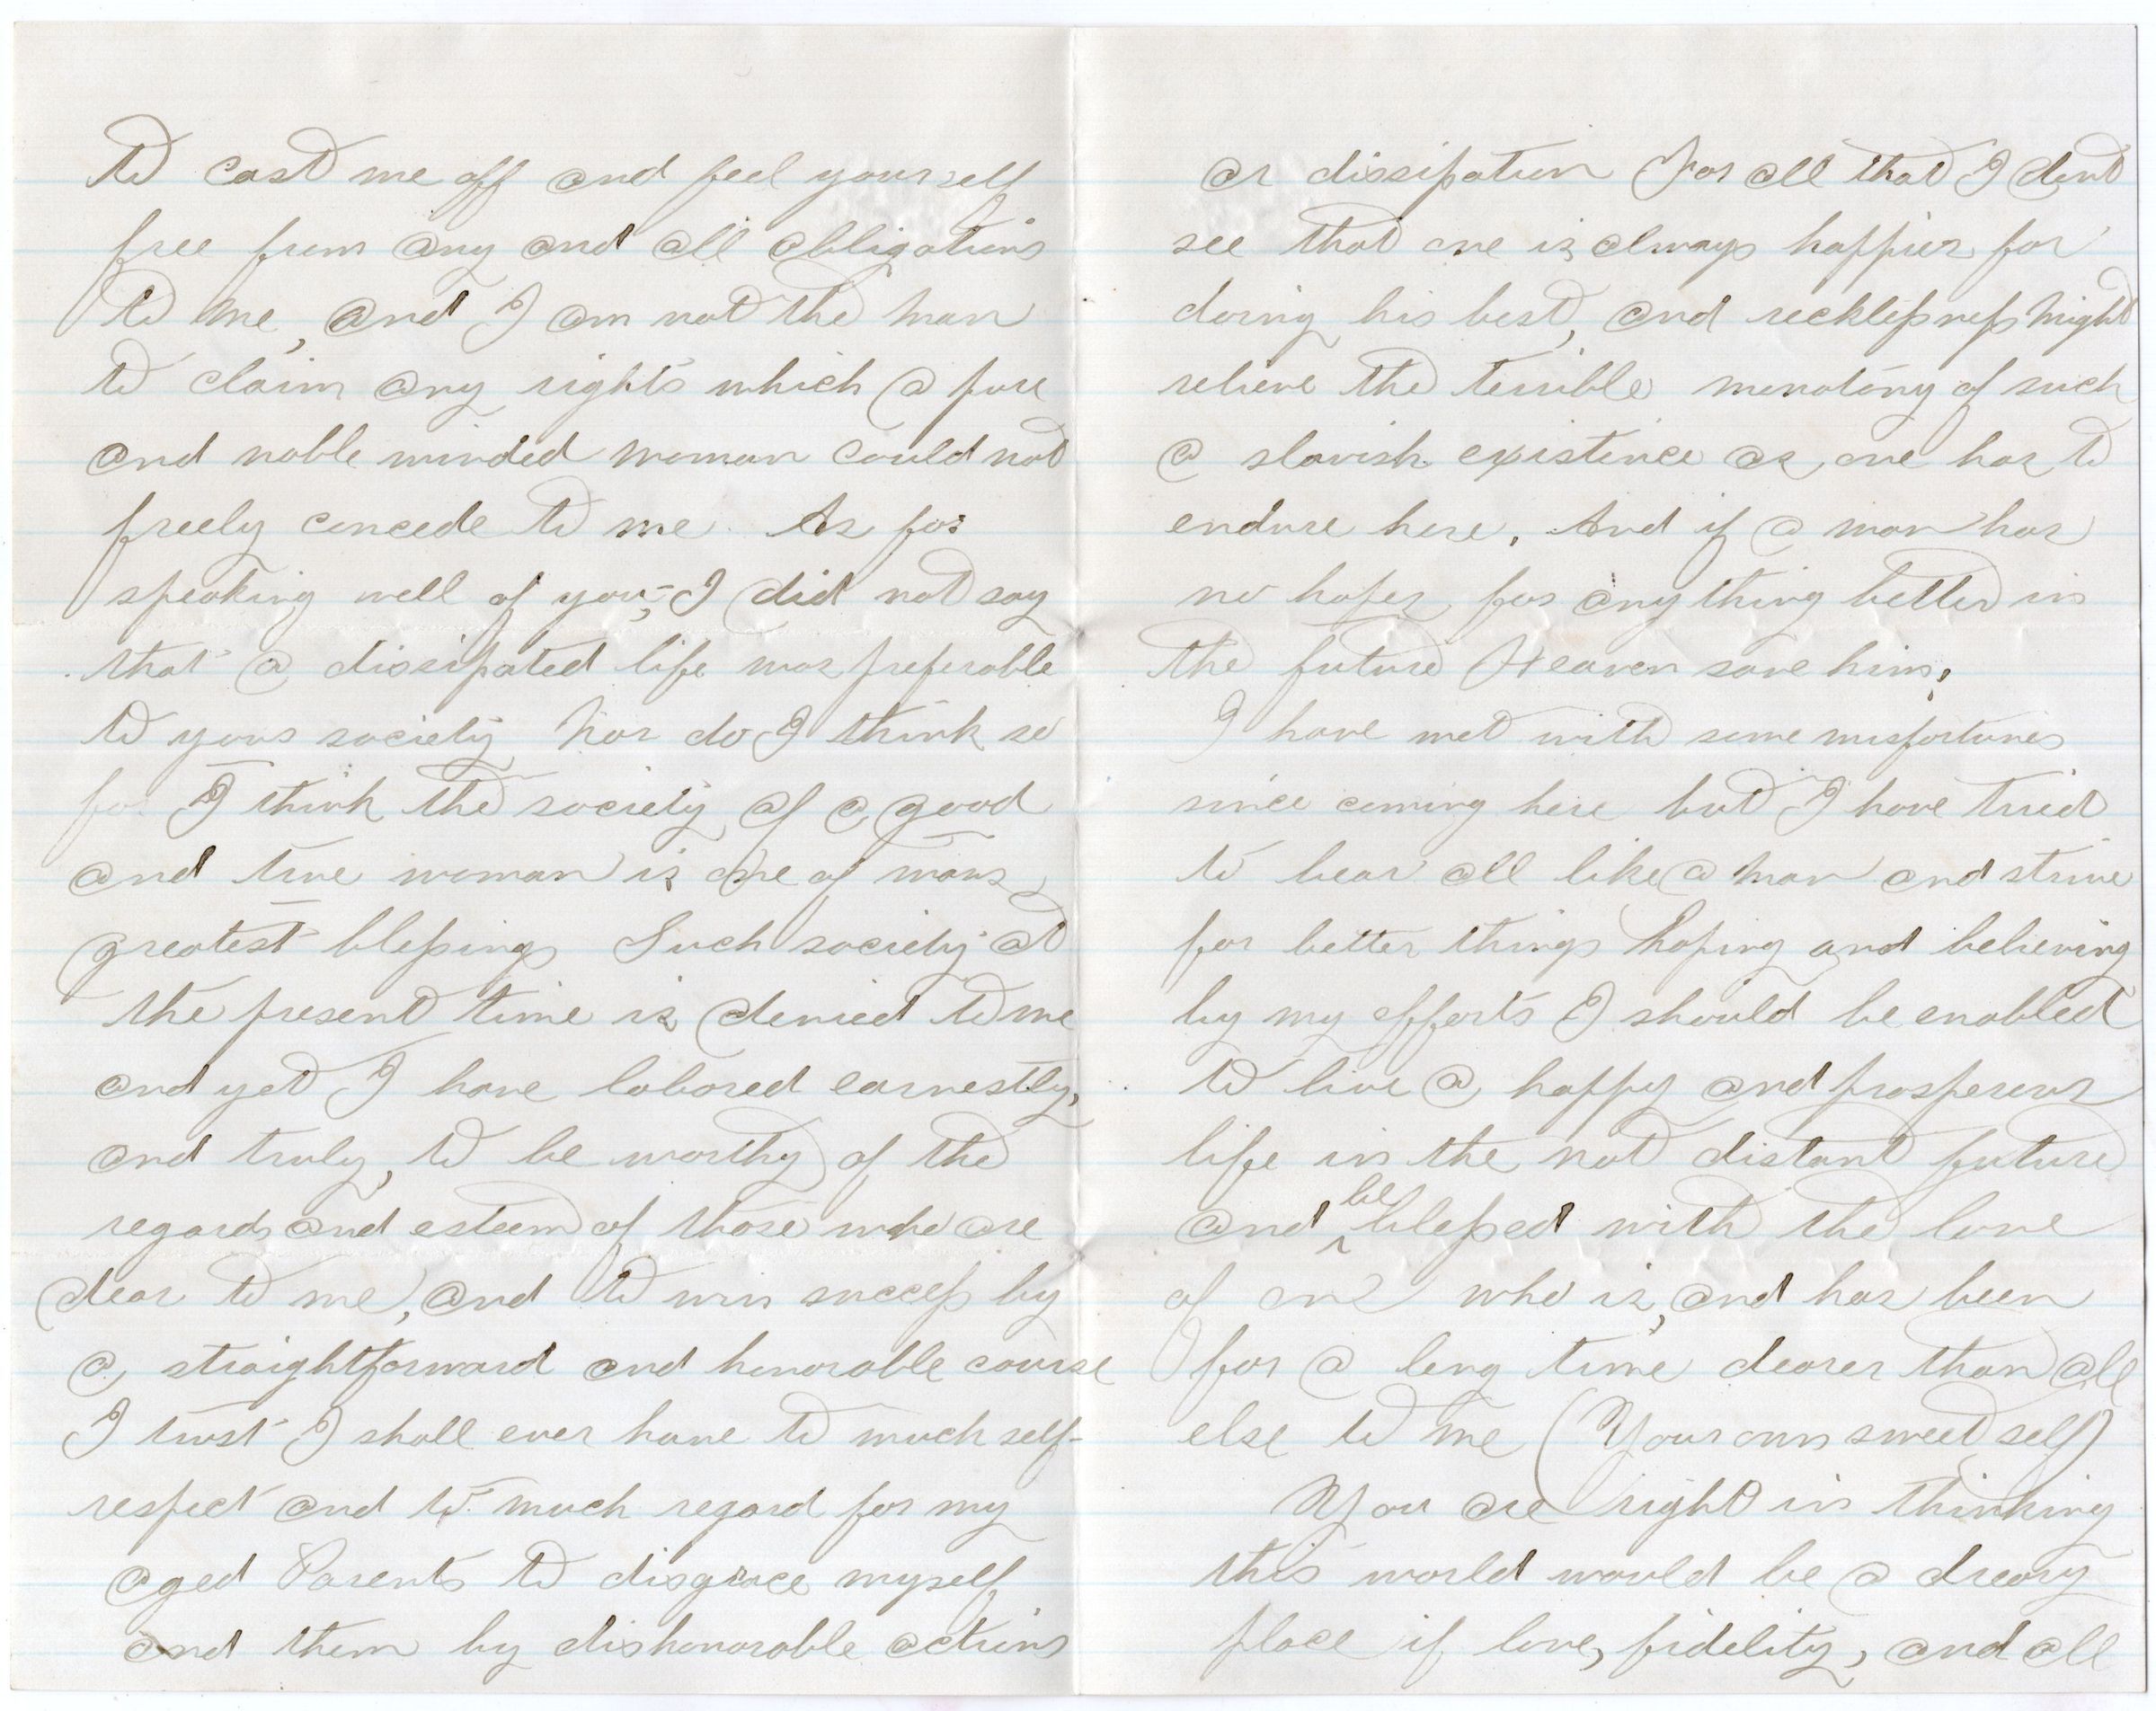 to cast me off and feel yourself
free from any and all obligations
to me, and I am not the man
to claim any rights which a pure
and noble minded woman could not
freely concede to me. As for
speaking well of you,- I did not say
that a dissipated life was preferable
to your society Nor do I think so
for I think the society of a good
and true woman is one of mans
greatest blessings Such society at
the present time is denied to me
and yet I have labored earnestly,
and truly, to be worthy of the
regards and esteem of those who are
dear to me, and to win success by
a straightforward and honorable course
I trust I shall ever have to much self-
respect and to much regard for my
aged Parents to disgrace myself
and them by dishonorable actions
or dissipation For all that I dont
see that one is always happier for
doing his best, and recklessness might
relieve the terrible monotony of such
a slavish existence as one has to
endure here. And if a man has
no hopes for any thing better in
the future Heaven save him.
I have met with some misfortunes
since coming here but I have tried
to bear all like a man and strive
for better things hoping and believing
by my efforts I should be enabled
to live a happy and prosperous
life in the not distant future
and be blessed with the love
of one who is, and has been
for a long time dearer than all
else to me (Your own sweet self)
You are right in thinking
this world would be a dreary
place if love, fidelity, and all